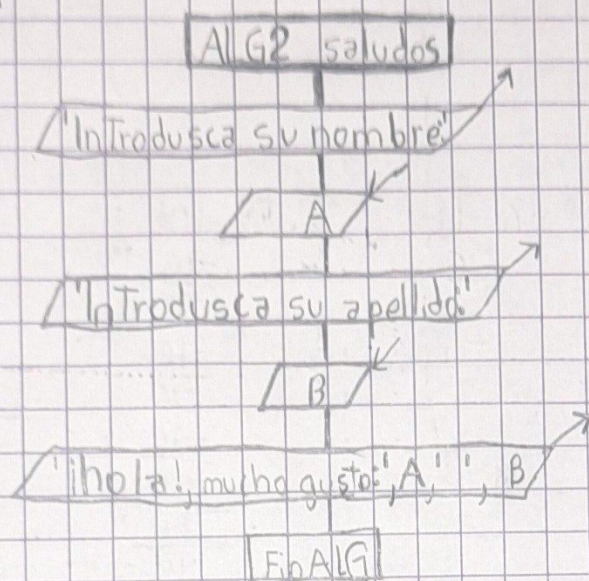 AlG2 saludos
"Introdusca su nombre"
A
"Introdusca su apellido"
B
"¡hola!, mucho gusto:", A, " ", B
Fin AlG